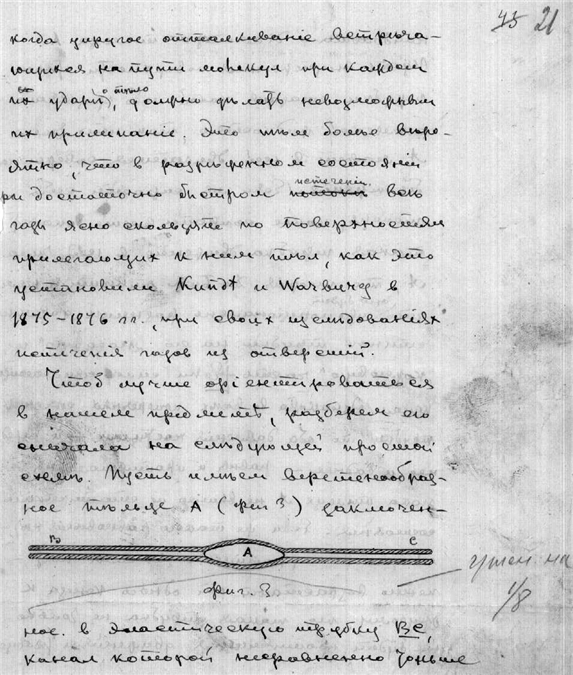 45 21
когда упругое отталкиваніе встрѣча-
ющихся на пути молекул при каждом
их ударѣ о тѣло, должно дѣлать невозможным
их прилипаніе. Это тѣм болѣе вѣро-
ятно, что в разрѣженном состояніи
при достаточно быстром истеченіи всѣ
газы ясно скользят по поверхностям
прилегающих к ним тѣл, как это
установили Kundt и Warburg в
1875-1876 гг., при своих изслѣдованіях
истеченія газов из отверстій.
Чтоб лучше оріентироваться
в нашем предметѣ, разберем его
сначала на слѣдующей простой
схемѣ. Пусть имѣем веретенообраз-
ное тѣльце А (фиг 3) заключен-
В А С
фиг. 3
на
1/8
ное в эластическую трубку ВС,
канал которой несравненно тоньше